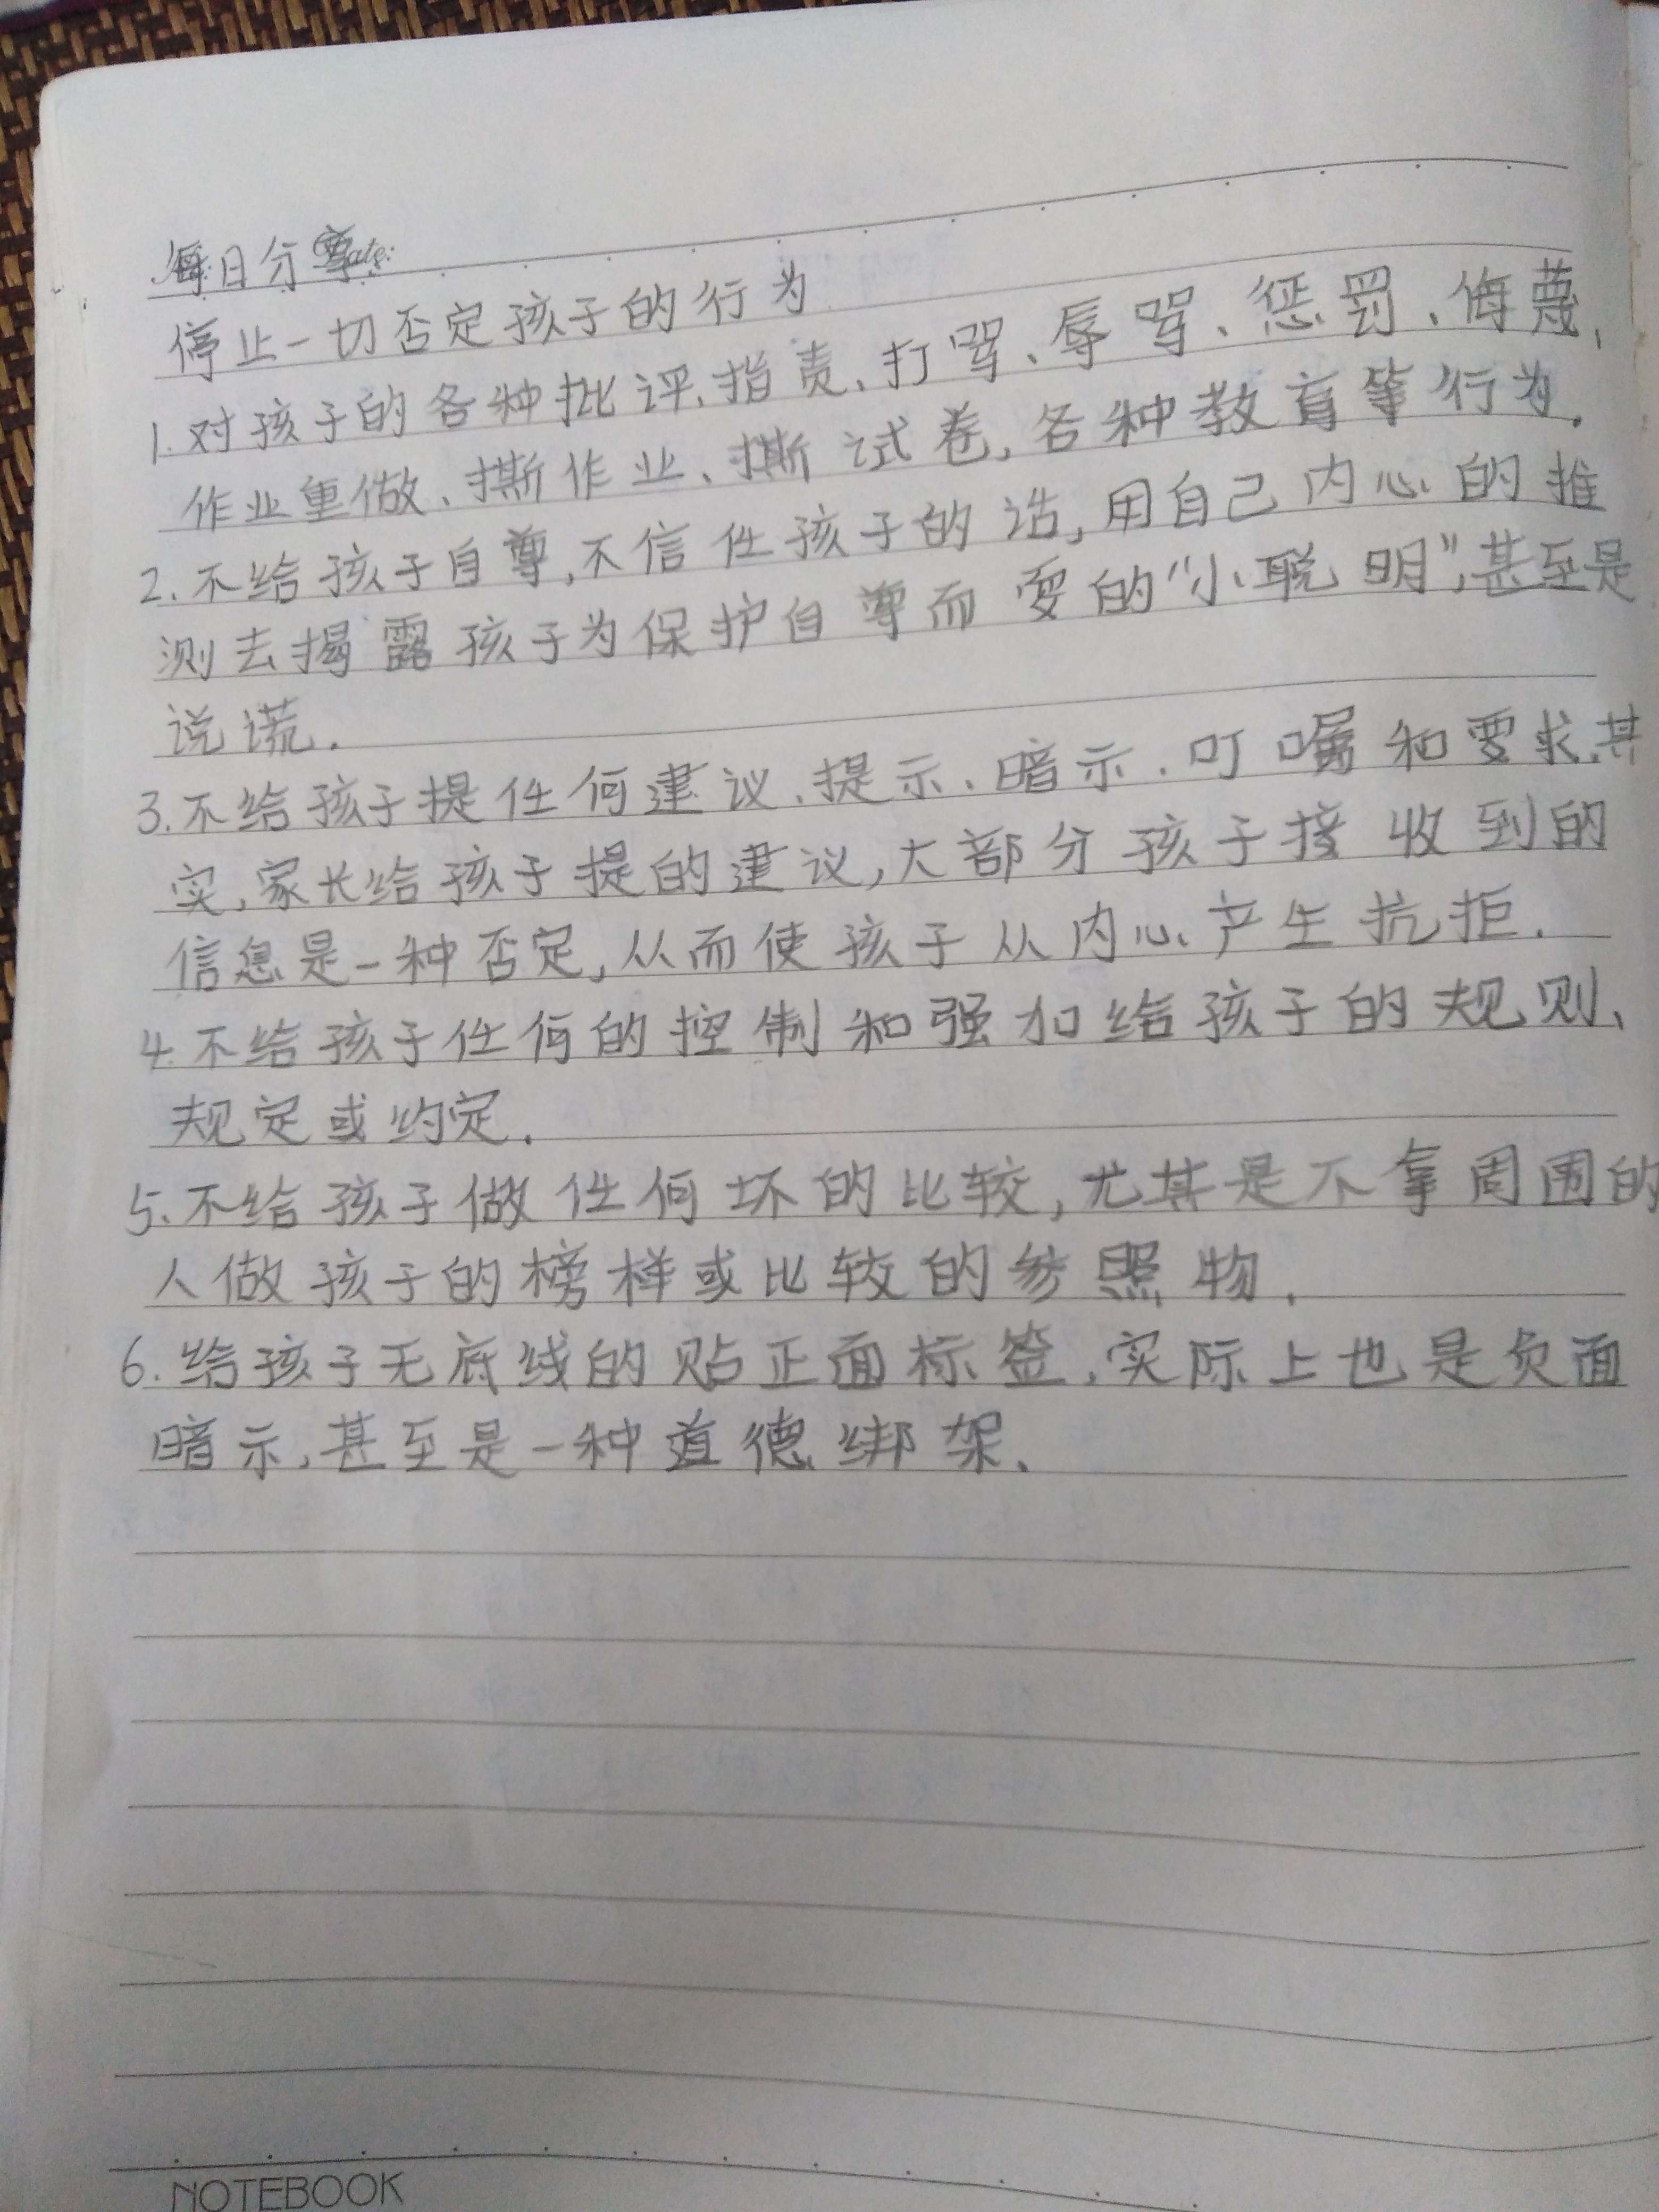 每日分享 Date:
停止一切否定孩子的行为
1.对孩子的各种批评、指责、打骂、辱骂、惩罚、侮蔑、
作业重做、撕作业、撕试卷,各种教育等行为.
2.不给孩子自尊,不信任孩子的话,用自己内心的推
测去揭露孩子为保护自尊而耍的“小聪明”,甚至是
说谎.
3.不给孩子提任何建议、提示、暗示、叮嘱和要求,其
实,家长给孩子提的建议,大部分孩子接收到的
信息是一种否定,从而使孩子从内心产生抗拒.
4.不给孩子任何的控制和强加给孩子的规则、
规定或约定.
5.不给孩子做任何坏的比较,尤其是不拿周围的
人做孩子的榜样或比较的参照物.
6.给孩子无底线的贴正面标签,实际上也是负面
暗示,甚至是一种道德绑架.
NOTEBOOK